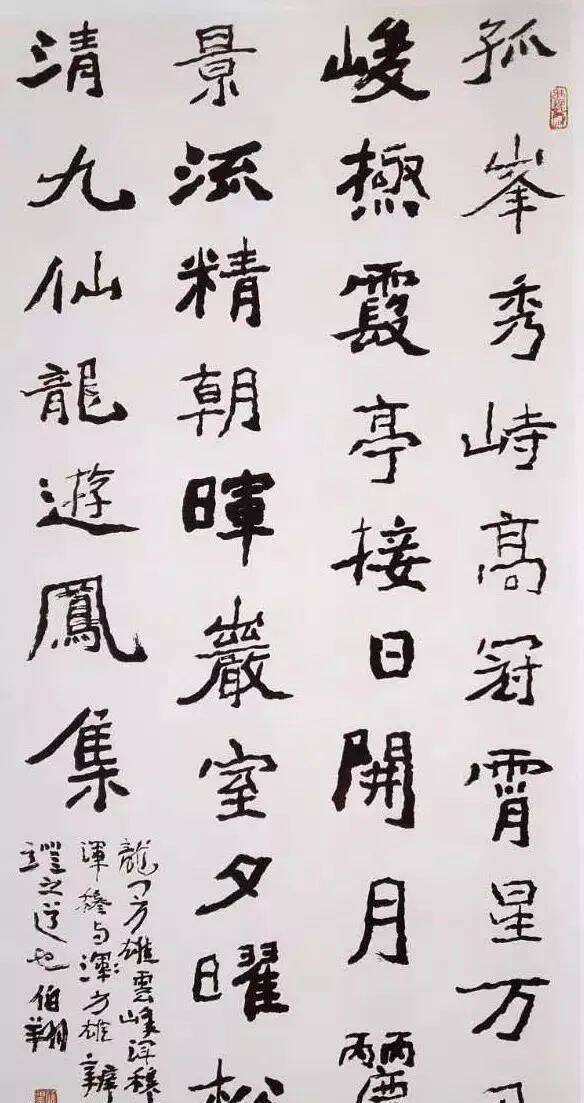 孤峯秀峙高冠霄星万
峻極霞亭接日開月麗
景流精朝暉巖室夕曜松
清九仙龍遊鳳集
龍门方雄雲峰渾穆
渾穆与渾方雄辯
證之道也伯翔